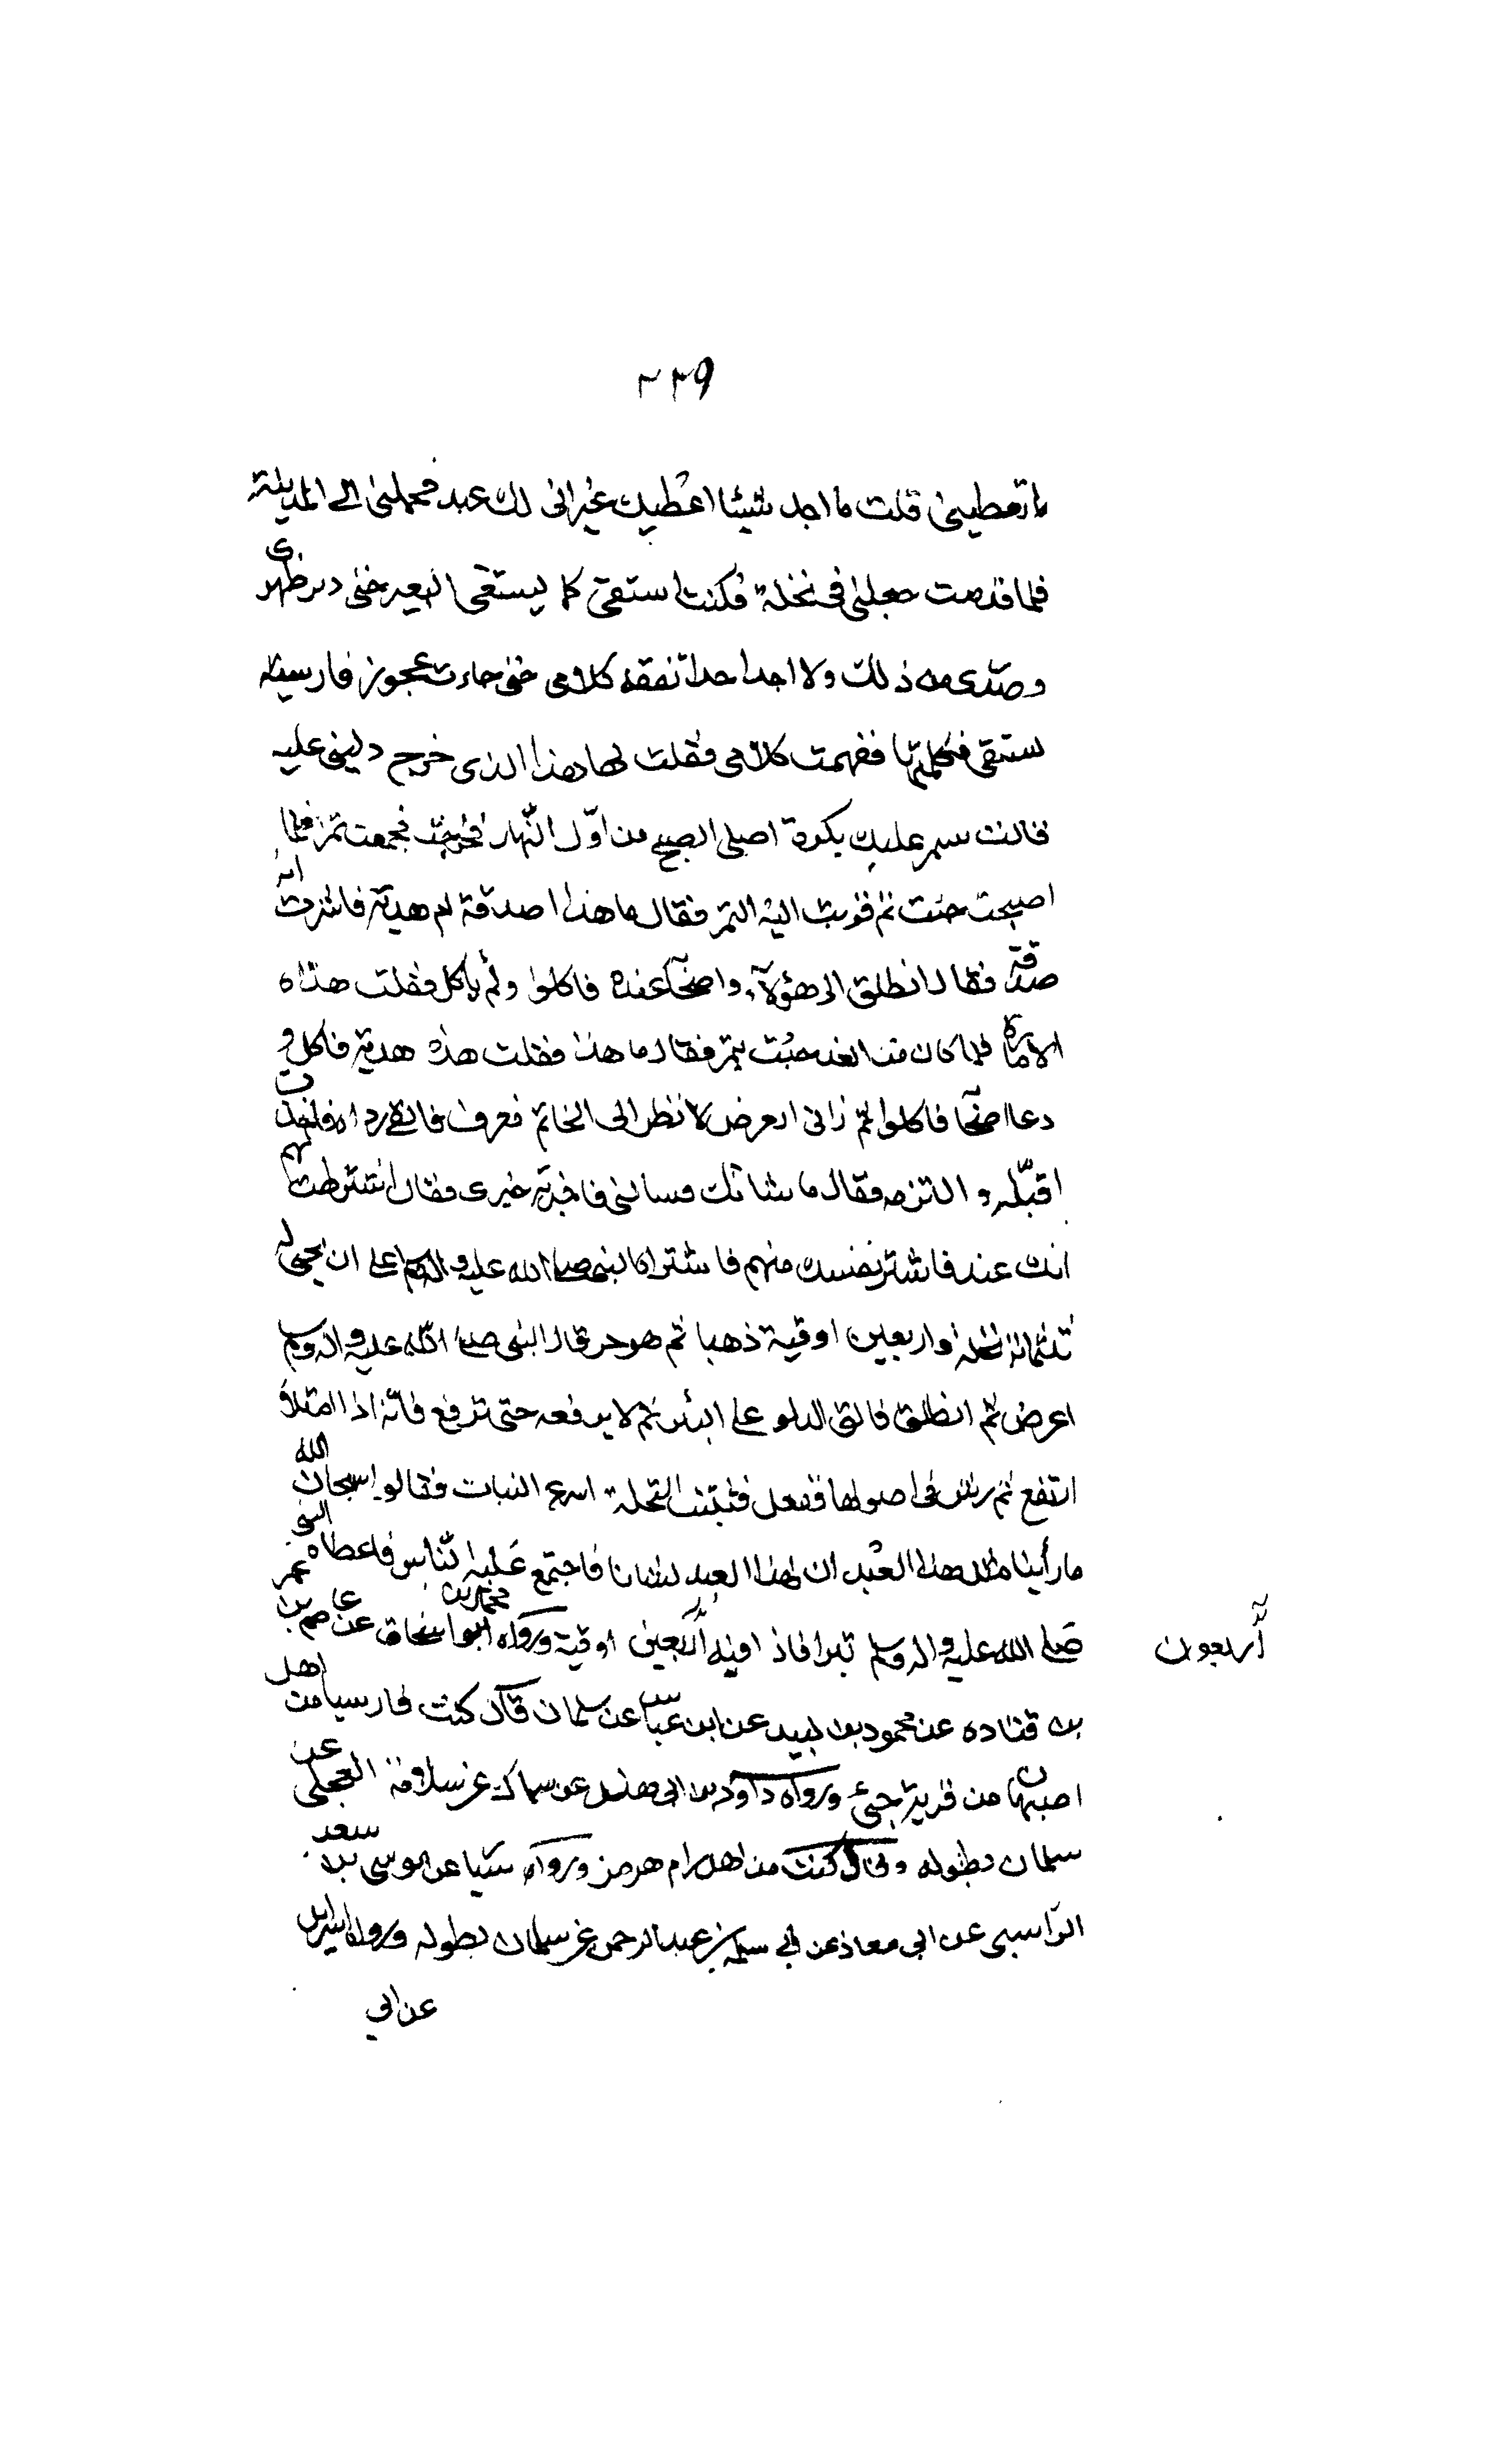 ٢٢٩
ما تعطينى قلت ما اجد شيئا اعطيك غير انى لك عبد فحملنى الى المدينة
فلما قدمت جعلنى فى نخلة فكنت استقى كما يستقى البعير حتى دبر ظهرى
وصدرى من ذلك ولا اجد احدا تفقه كلامى حتى جاءت عجوز فارسية
تستقى فكلمتها ففهمت كلامى فقلت لها هذا الذى خرج دلينى عليه
قالت سيمر عليك بكرة اصلى الصبح من اول النهار فخرجت فجمعت تمرا فلما
اصبحت جئت ثم قربت اليه التمر فقال ما هذا اصدقة ام هدية فاشرت انه
صدقة فقال انطلق الى هؤلآء واصحابه عنده فاكلوا ولم ياكل فقلت هذه
الامارة فلما كان من الغد جئت بتمر فقال ما هذا فقلت هذه هدية فاكل و
دعا اصحابه فاكلوا ثم رانى اتعرض لانظر الى الخاتم فعرف فالقى رداءه فاخذت
اقبّله والتزمه فقال ما شانك فسالنى فاخبرته خبرى فقال اشترطت لهم
انك عبد فاشتر نفسك منهم فاشتراه النبى صلى الله عليه واله وسلم على ان يحيى له
ثلثمائة نخلة واربعين اوقية ذهبا ثم هو حر قال النبى صلى الله عليه واله وسلم
اغرض ثم انطلق فالق الدلو على البئر ثم لا يرفعه حتى ترفع فانه اذا امتلأ
ارتفع ثم رش فى اصولها ففعل فنبتت النخلة اسرع النبات فقالوا سبحان الله
ما رأينا مثل هذا العبد ان لهذا العبد لشانا فاجتمع عليه الناس فاعطاه النبى
صلى الله عليه واله وسلم تبرا فاذا فيه أربعين اوقية ورواه محمد بن اسحاق عن عاصم بن عمر
أربعون
بن قتاده عن محمود بن لبيد عن ابن عباس عن سلمان قال كنت فارسيا من اهل
اصبهان من قرية جىّ ورواه داود بن ابى هند عن سماك عن سلامة العجلى عن
سلمان بطوله وقال كنت من اهل رام هرمز ورواه سيار عن موسى بن سعد
الراسبى عن ابى معاذ عن ابى سلمة بن عبد الرحمن عن سلمان بطوله ورواه اسرائيل
عن ابي